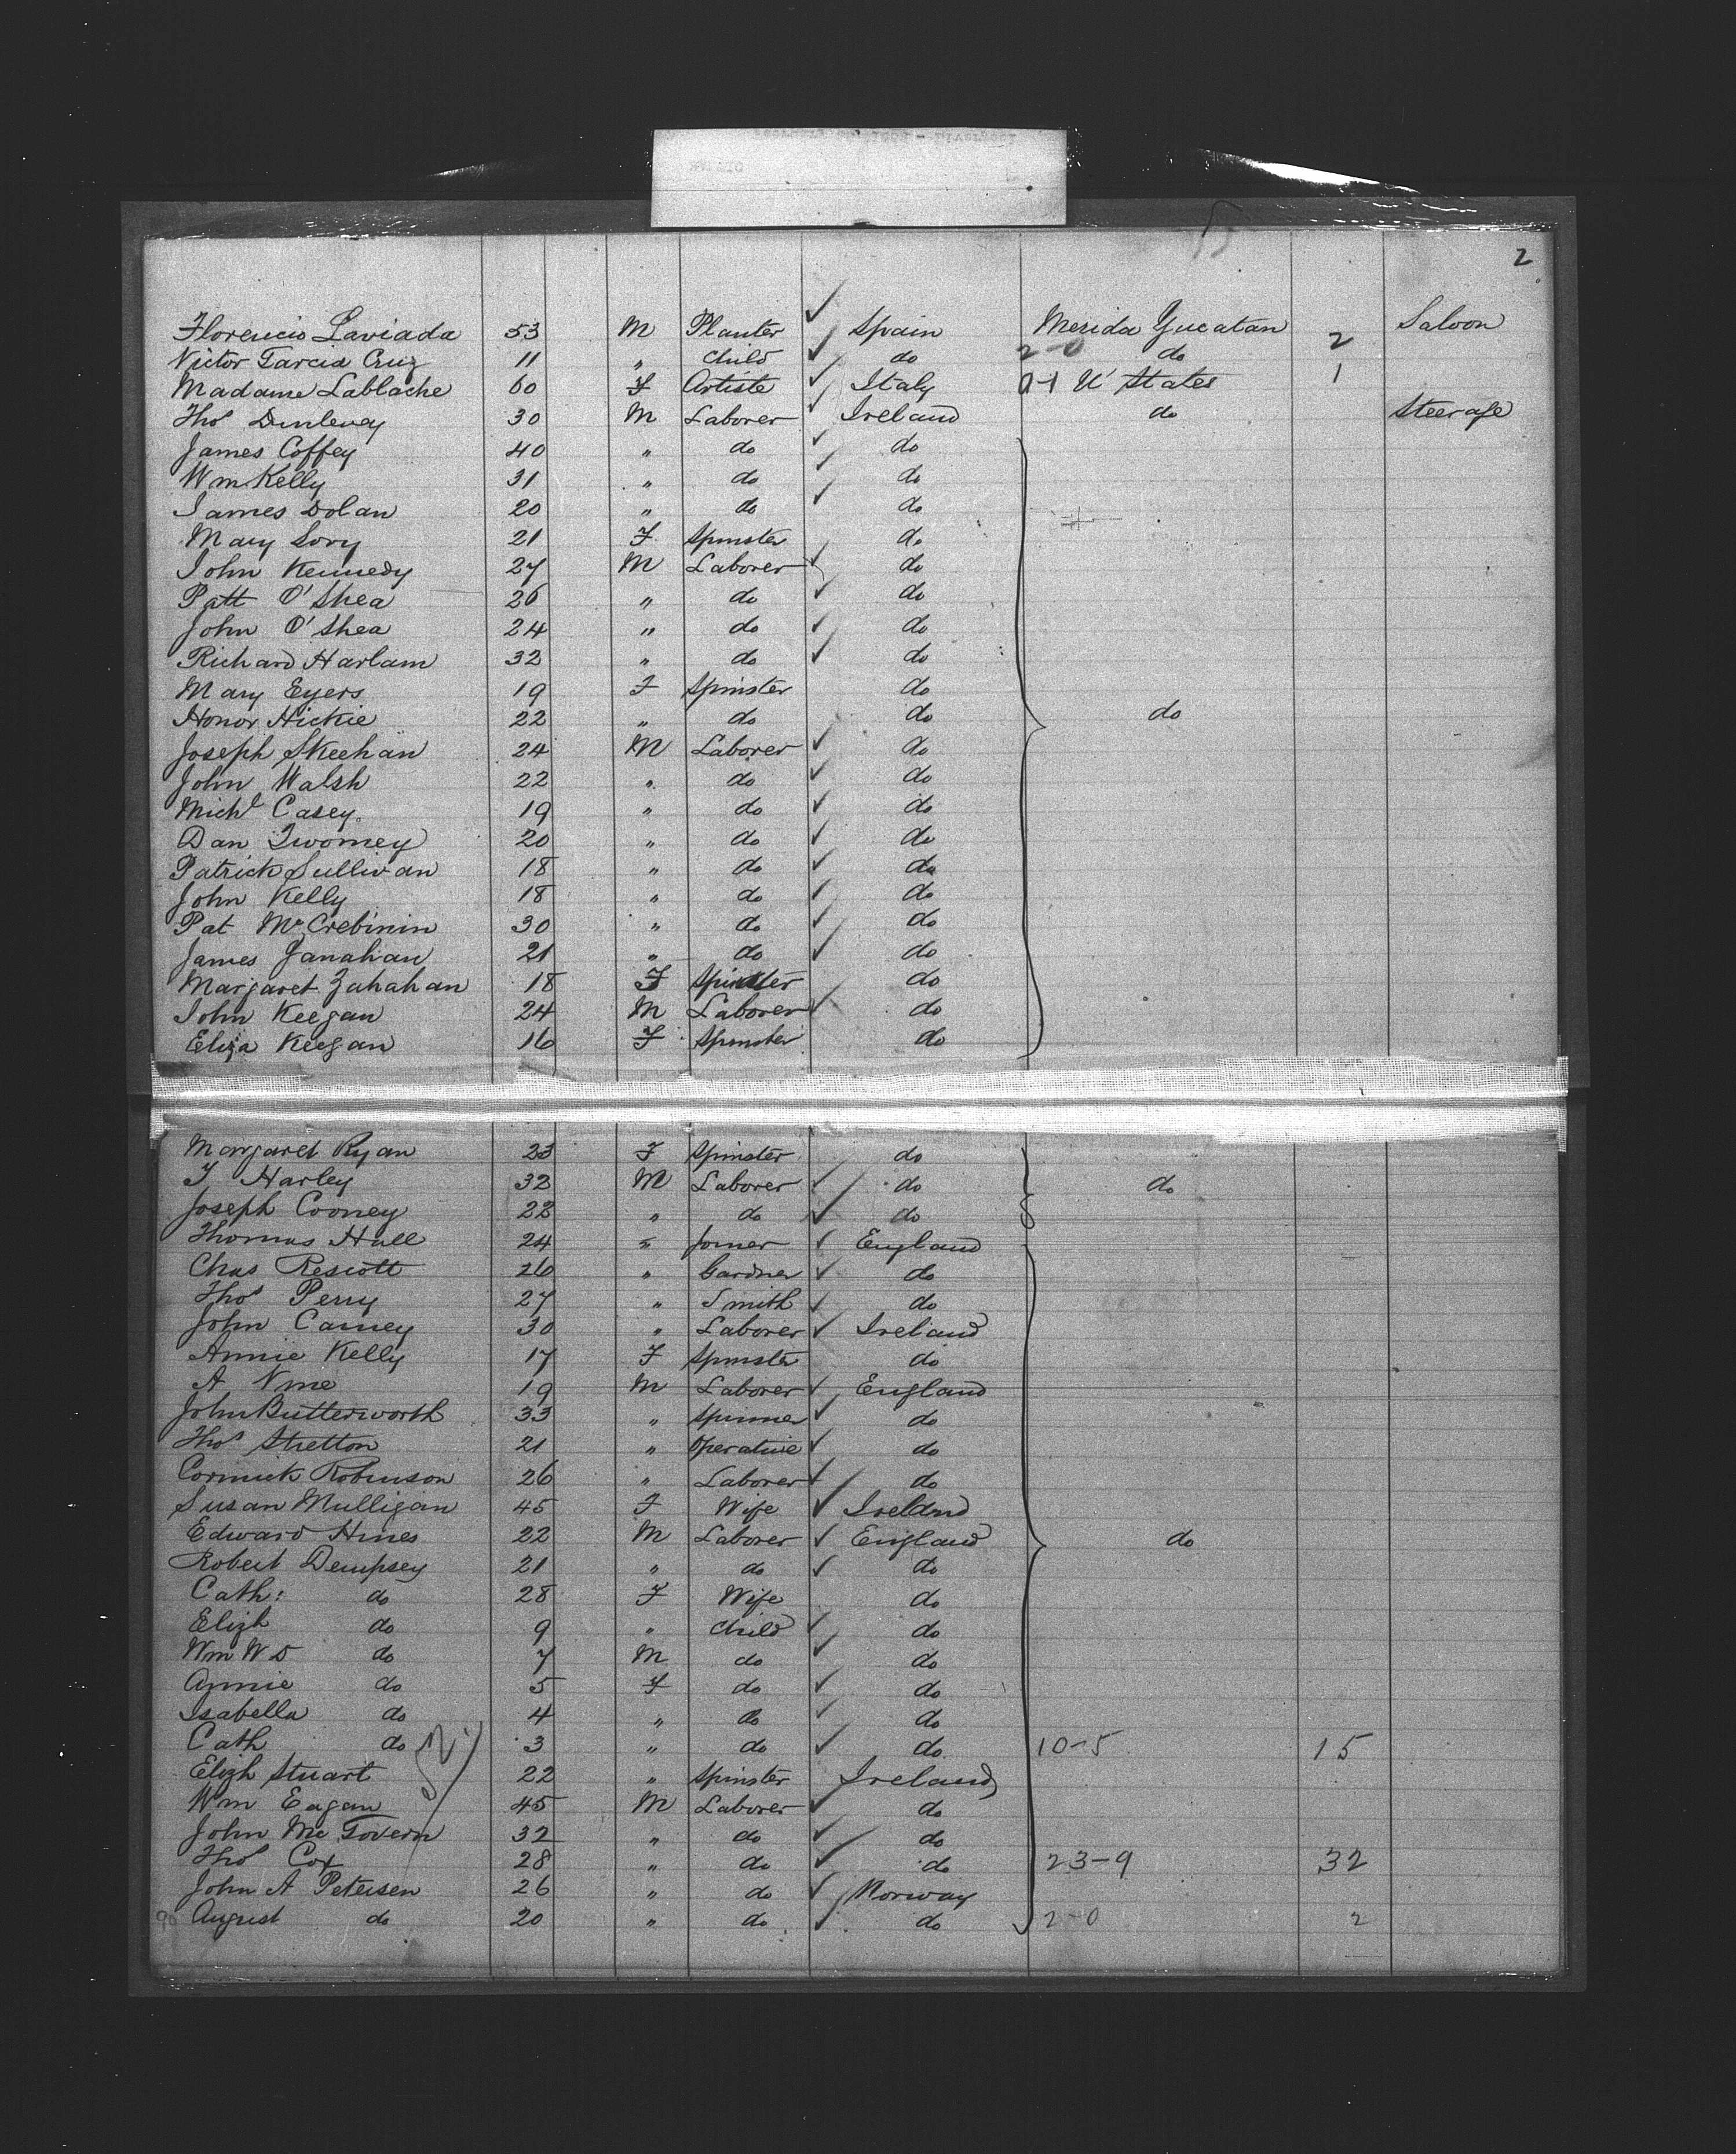 2
Florencio Laviada 53 M Planter Spain Merida Yucatan 2 Saloon
Victor Garcia Cruz 11 " Child do 2-0 do
Madame Lablache 60 F Artiste Italy 0-1 U States 1
Thos Dunlevey 30 M Laborer Ireland do Steerage
James Coffey 40 " do do
Wm Kelly 31 " do do
James Dolan 20 " do do
Mary Lovy 21 F Spinster do
John Kennedy 27 M Laborer do
Patt O'Shea 26 " do do
John O'Shea 24 " do do
Richard Harlam 32 " do do
Mary Eyers 19 F Spinster do
Honor Hickie 22 " do do do
Joseph Skeehan 24 M Laborer do
John Walsh 22 " do do
Michl Casey 19 " do do
Dan Twomey 20 " do do
Patrick Sullivan 18 " do do
John Kelly 18 " do do
Pat McCrebinin 30 " do do
James Ganahan 21 " do do
Margaret Zahahan 18 F Spinster do
John Keegan 24 M Laborer do
Eliza Keegan 16 F Spinster do
Margaret Ryan 23 F Spinster do
T Harley 32 M Laborer do do
Joseph Cooney 22 " do do
Thomas Hall 24 " Joiner England
Chas Rescott 26 " Gardner do
Thos Perry 27 " Smith do
John Carney 30 " Laborer Ireland
Annie Kelly 17 F Spinster do
A Vine 19 M Laborer England
John Butterworth 33 " Spinner do
Thos Stretton 21 " Operative do
Cormick Robinson 26 " Laborer do
Susan Mulligan 45 F Wife Ireland
Edward Hines 22 M Laborer England do
Robert Dempsey 21 " do do
Cath: do 28 F Wife do
Elizh do 9 " Child do
Wm W D do 7 M do do
Annie do 5 F do do
Isabella do 4 " do do
Cath do 3 " do do 10-5 15
Elizh Stuart 22 " Spinster Ireland
Wm Eagan 45 M Laborer do
John McGovern 32 " do do
Thos Cox 28 " do do 23-9 32
John A Petersen 26 " do Norway
August do 20 " do do 2-0 2